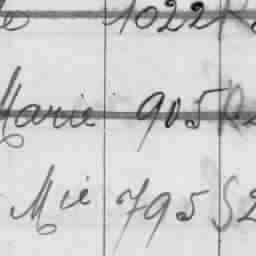 1022 R
Marie 905 R
Mie 795 S2